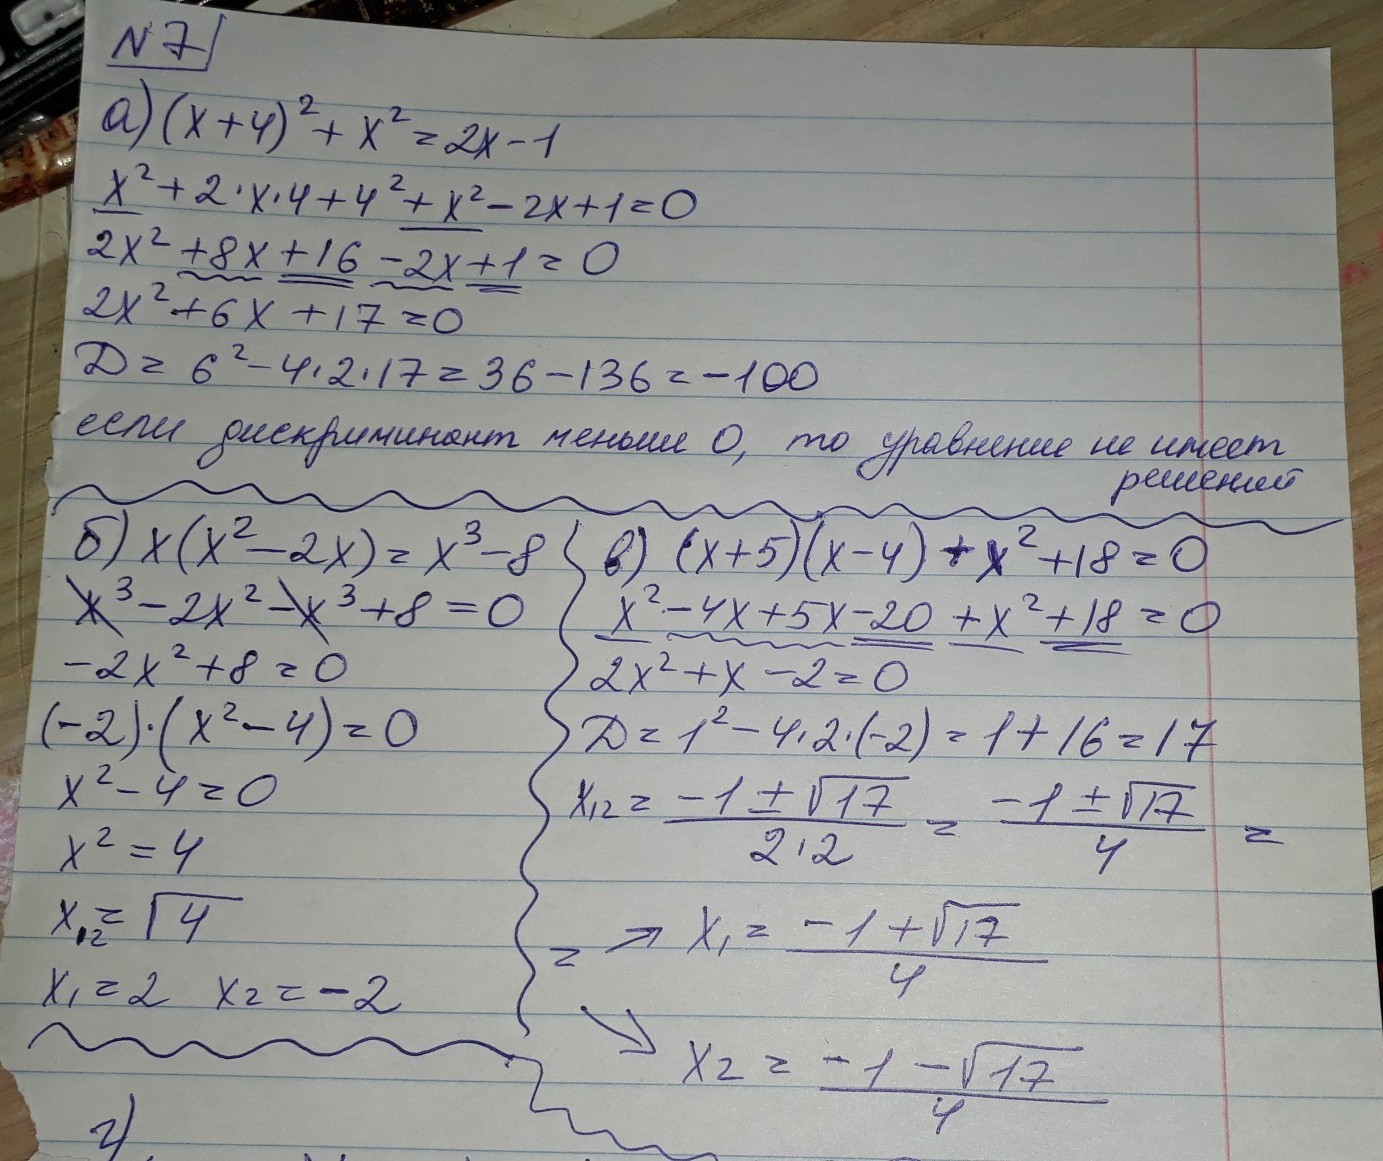 N 7
а) (x+4)² + x² = 2x - 1
x² + 2·x·4 + 4² + x² - 2x + 1 = 0
2x² + 8x + 16 - 2x + 1 = 0
2x² + 6x + 17 = 0
Д = 6² - 4·2·17 = 36 - 136 = -100
если дискриминант меньше 0, то уравнение не имеет
решений
б) x(x² - 2x) = x³ - 8
x³ - 2x² - x³ + 8 = 0
-2x² + 8 = 0
(-2)·(x² - 4) = 0
x² - 4 = 0
x² = 4
x₁,₂ = √4
x₁ = 2 x₂ = -2
в) (x+5)(x-4) + x² + 18 = 0
x² - 4x + 5x - 20 + x² + 18 = 0
2x² + x - 2 = 0
Д = 1² - 4·2·(-2) = 1 + 16 = 17
x₁,₂ = (-1 ± √17)/(2·2) = (-1 ± √17)/4 =
= → x₁ = (-1 + √17)/4
↘ x₂ = (-1 - √17)/4
г)